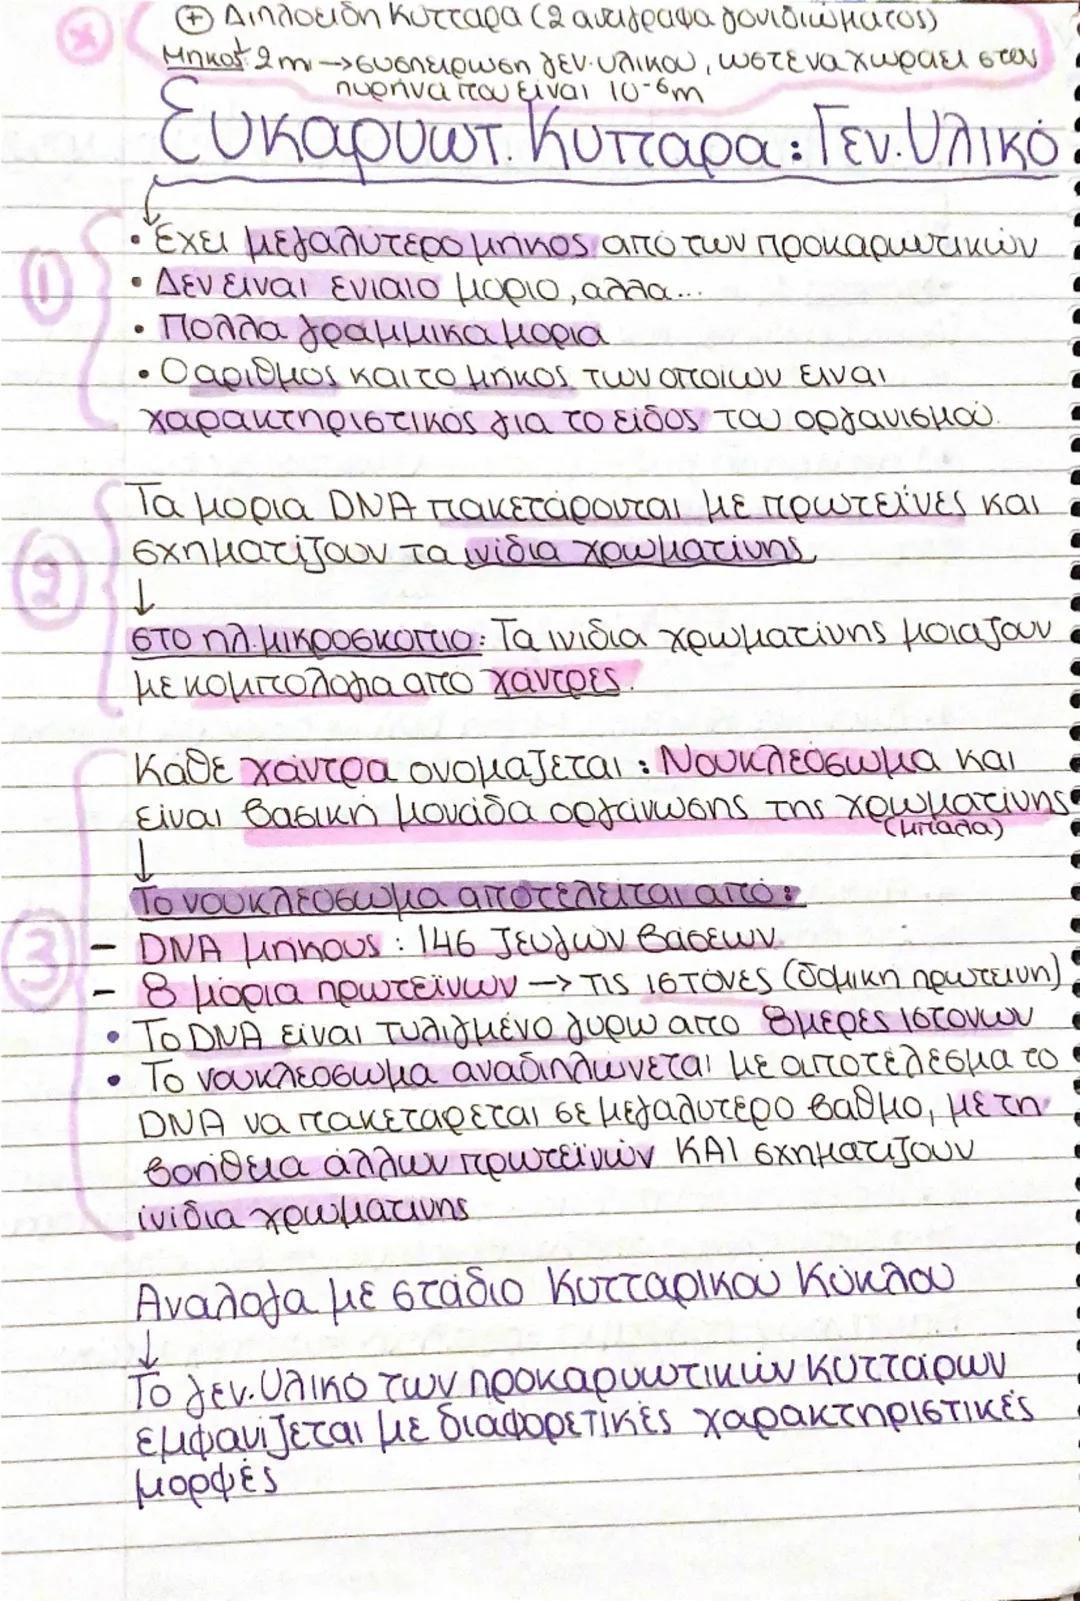 ⊕ Διπλοειδη Κυτταρα (2 αντιγραφα γονιδιωματος)
Μηκος 2m → συσπειρωση γεν. υλικου, ωστε να χωραει στον
πυρηνα που ειναι 10⁻⁶m
Ευκαρυωτ. Κυτταρα: Γεν. Υλικό
1
• Έχει μεγαλυτερο μηκος απο των προκαρυωτικών
• Δεν ειναι ενιαιο μοριο, αλλα...
• Πολλα γραμμικα μορια
• Ο αριθμος και το μηκος των οποιων ειναι
χαρακτηριστικός για το είδος του οργανισμού.
2
Τα μορια DNA πακετάρονται με πρωτεϊνες και
σχηματίζουν τα ινίδια χρωματίνης
↓
στο ηλ. μικροσκοπιο: Τα ινιδια χρωματίνης μοιαζουν
με κομπολογια απο χάντρες.
3
Κάθε χάντρα ονομαζεται: Νουκλεόσωμα και
είναι βασική μονάδα οργάνωσης της χρωματίνης
(μπαλα)
↓
Το νουκλεοσωμα αποτελειται απο:
– DNA μηκους: 146 ζευγών βάσεων.
– 8 μόρια πρωτεϊνων → τις ιστόνες (δομικη πρωτεινη)
• Το DNA είναι τυλιγμένο γυρω απο 8μερες ιστονων
• Το νουκλεοσωμα αναδιπλώνεται με αποτέλεσμα το
DNA να πακεταρεται σε μεγαλυτερο βαθμο, με τη
βοήθεια άλλων πρωτεϊνών ΚΑΙ σχηματιζουν
ινίδια χρωματινης
Αναλογα με στάδιο Κυτταρικου Κύκλου
↓
Το γεν. Υλικό των προκαρυωτικών κυττάρων
εμφανιζεται με διαφορετικές χαρακτηριστικές
μορφές